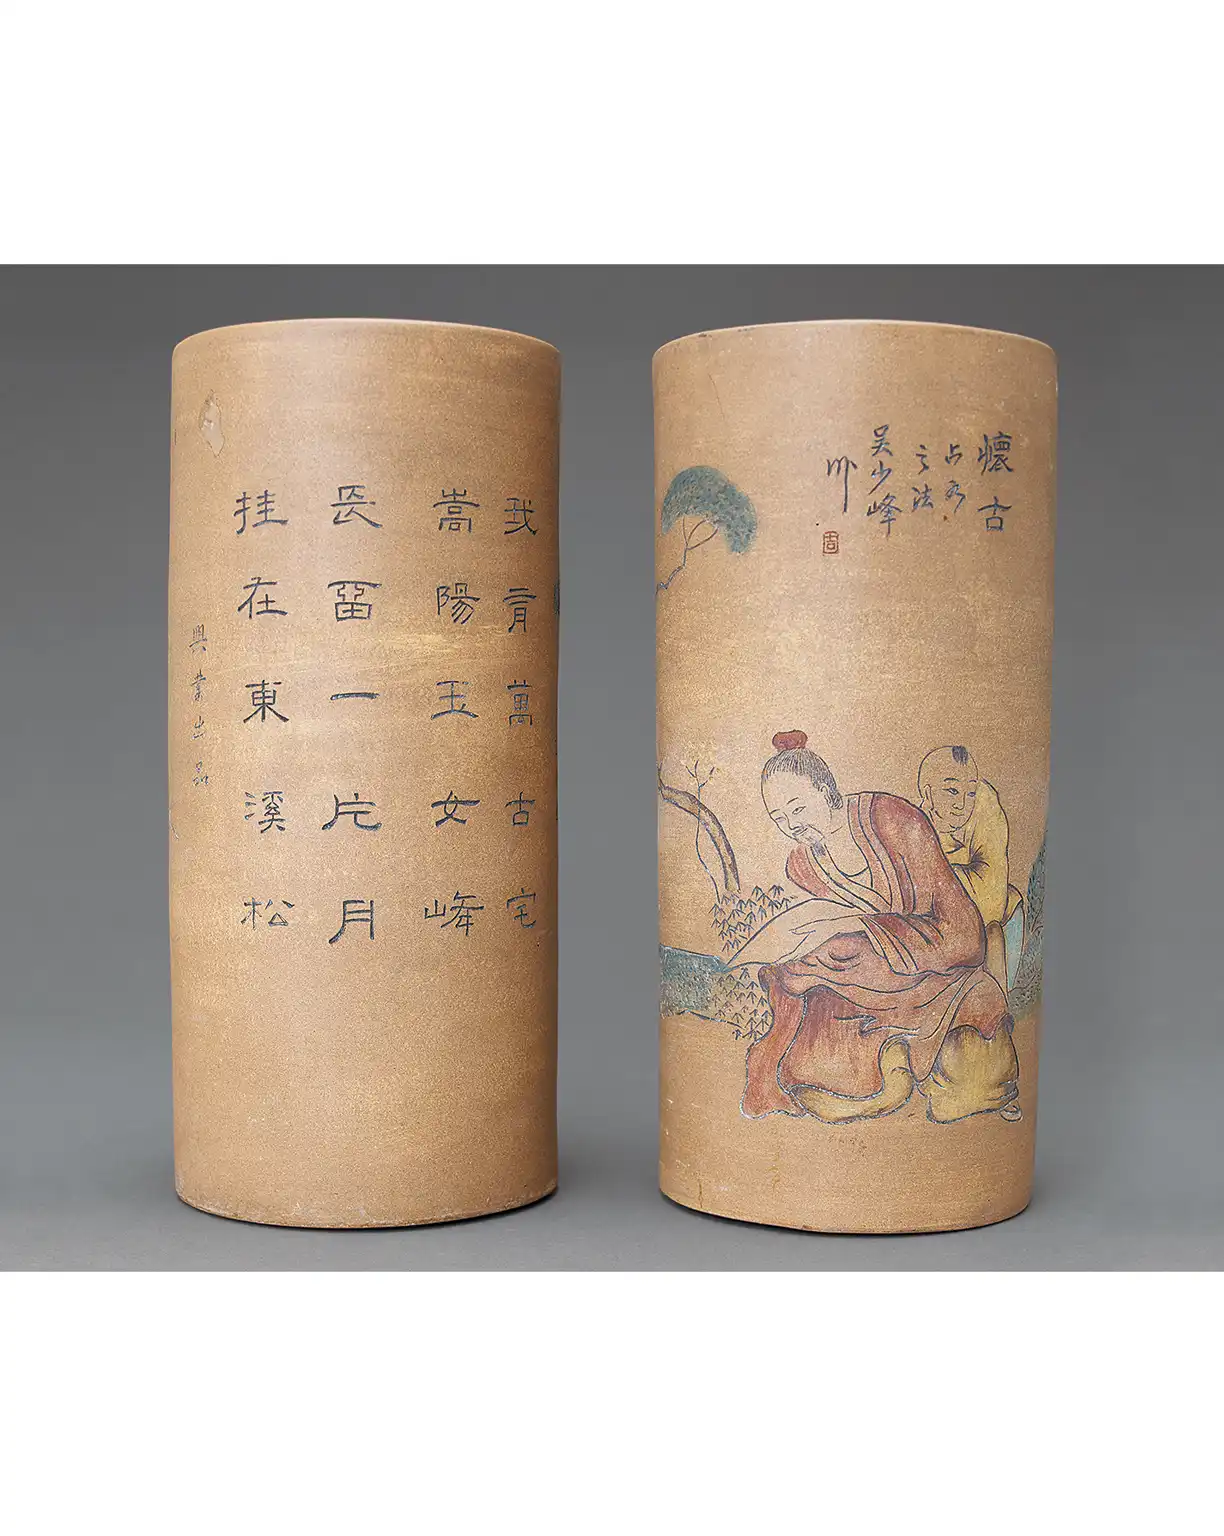 我肯萬古宅
嵩陽玉女峰
長留一片月
挂在東溪松
興業出品
懷古
之法
吴少峰